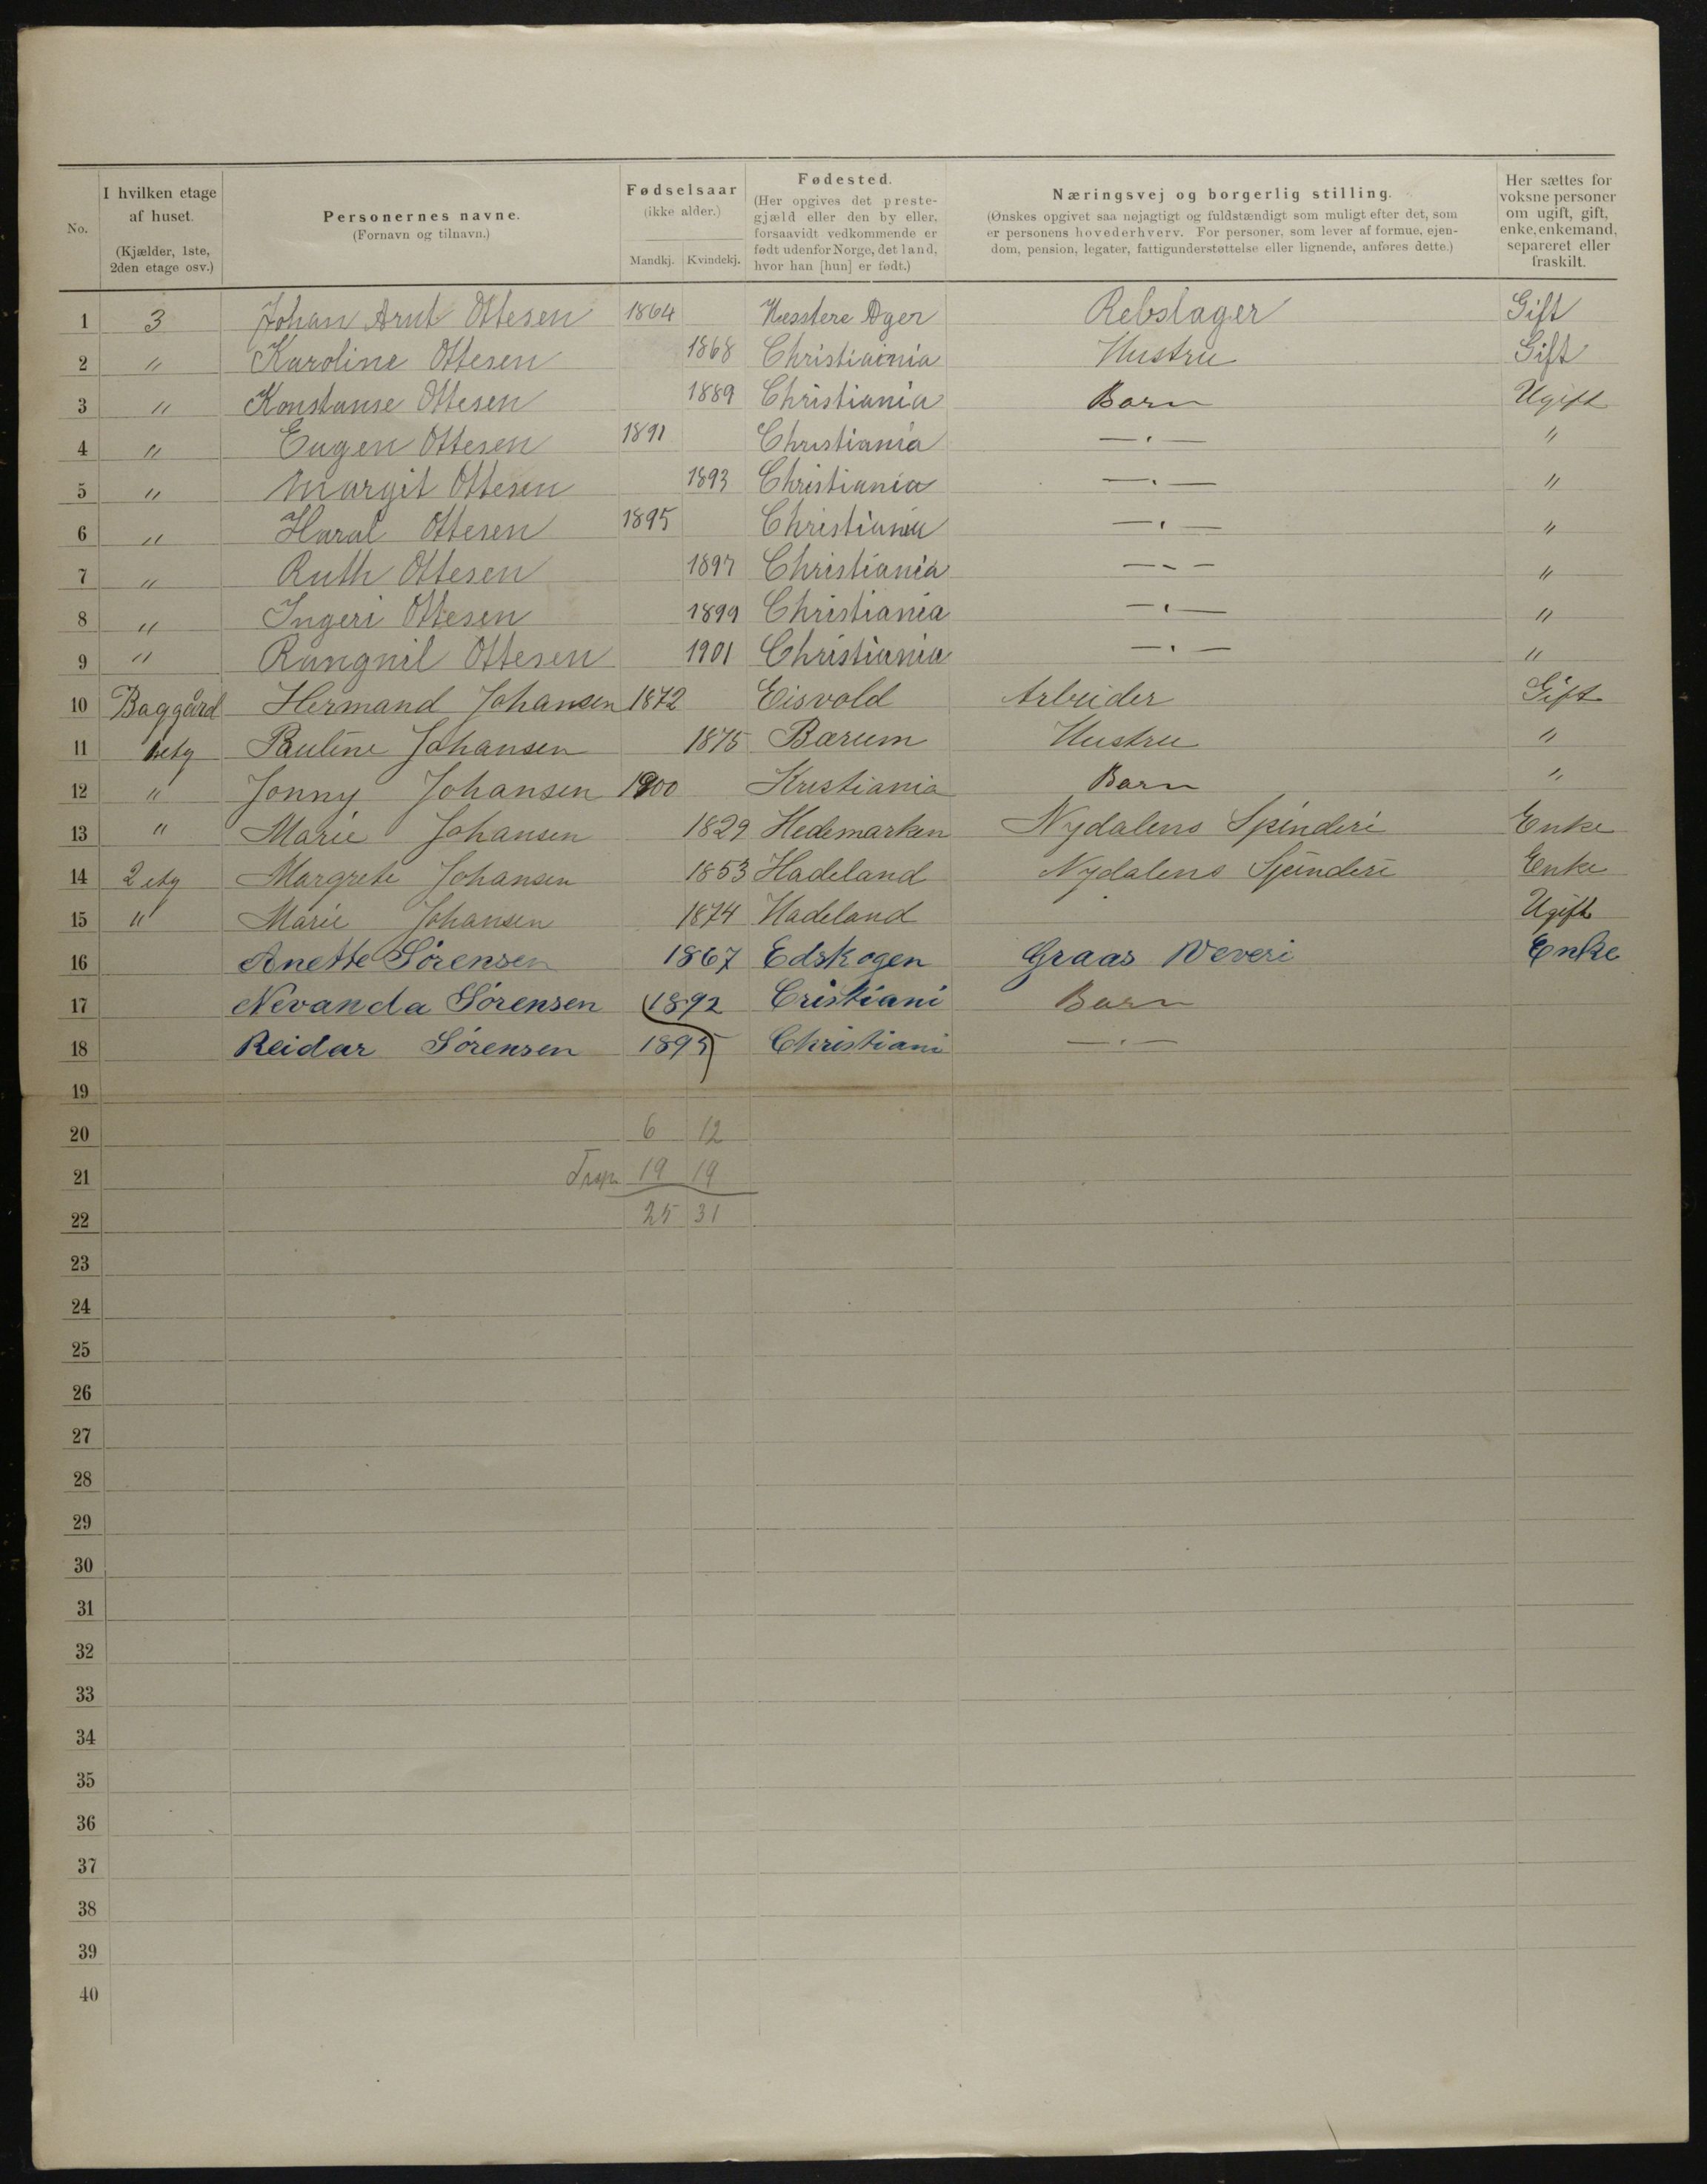 No. | I hvilken etage af huset. (Kjælder, 1ste, 2den etage osv.) | Personernes navne. (Fornavn og tilnavn.) | Fødselsaar (ikke alder.) Mandkj. Kvindekj. | Fødested. (Her opgives det prestegjæld eller den by eller, forsaavidt vedkommende er født udenfor Norge, det land, hvor han [hun] er født.) | Næringsvej og borgerlig stilling. (Ønskes opgivet saa nøjagtigt og fuldstændigt som muligt efter det, som er personens hovederhverv. For personer, som lever af formue, ejendom, pension, legater, fattigunderstøttelse eller lignende, anføres dette.) | Her sættes for voksne personer om ugift, gift, enke, enkemand, separeret eller fraskilt.
1 3 Johan Arnt Ottesen 1864 Vesstere Ager Rebslager Gift
2 " Karoline Ottesen 1868 Christiainia Hustru Gift
3 " Konstanse Ottesen 1889 Christiania Barn Ugift
4 " Eugen Ottesen 1891 Christiania —·— "
5 " Margit Ottesen 1893 Christiania —·— "
6 " Haral Ottesen 1895 Christiania —·— "
7 " Ruth Ottesen 1897 Christiania —-— "
8 " Ingeri Ottesen 1899 Christiania —·— "
9 " Rangnil Ottesen 1901 Christiania —·— "
10 Baggård Hermand Johansen 1872 Eisvold Arbeider Gift
11 1 etg Pauline Johansen 1875 Barum Hustru "
12 " Jonny Johansen 1900 Kristiania Barn "
13 " Marie Johansen 1829 Hedemarken Nydalens Spinderi Enke
14 2 etg Margrete Johansen 1853 Hadeland Nydalens Spinderi Enke
15 " Marie Johansen 1874 Hadeland Ugift
16 Anette Sørensen 1867 Edskogen Graas Veveri Enke
17 Nevanda Sørensen 1892 Cristiani Barn
18 Reidar Sørensen 1895 Christiani —·—
19
20 6 12
21 Trsp. 19 19
22 25 31
23
24
25
26
27
28
29
30
31
32
33
34
35
36
37
38
39
40